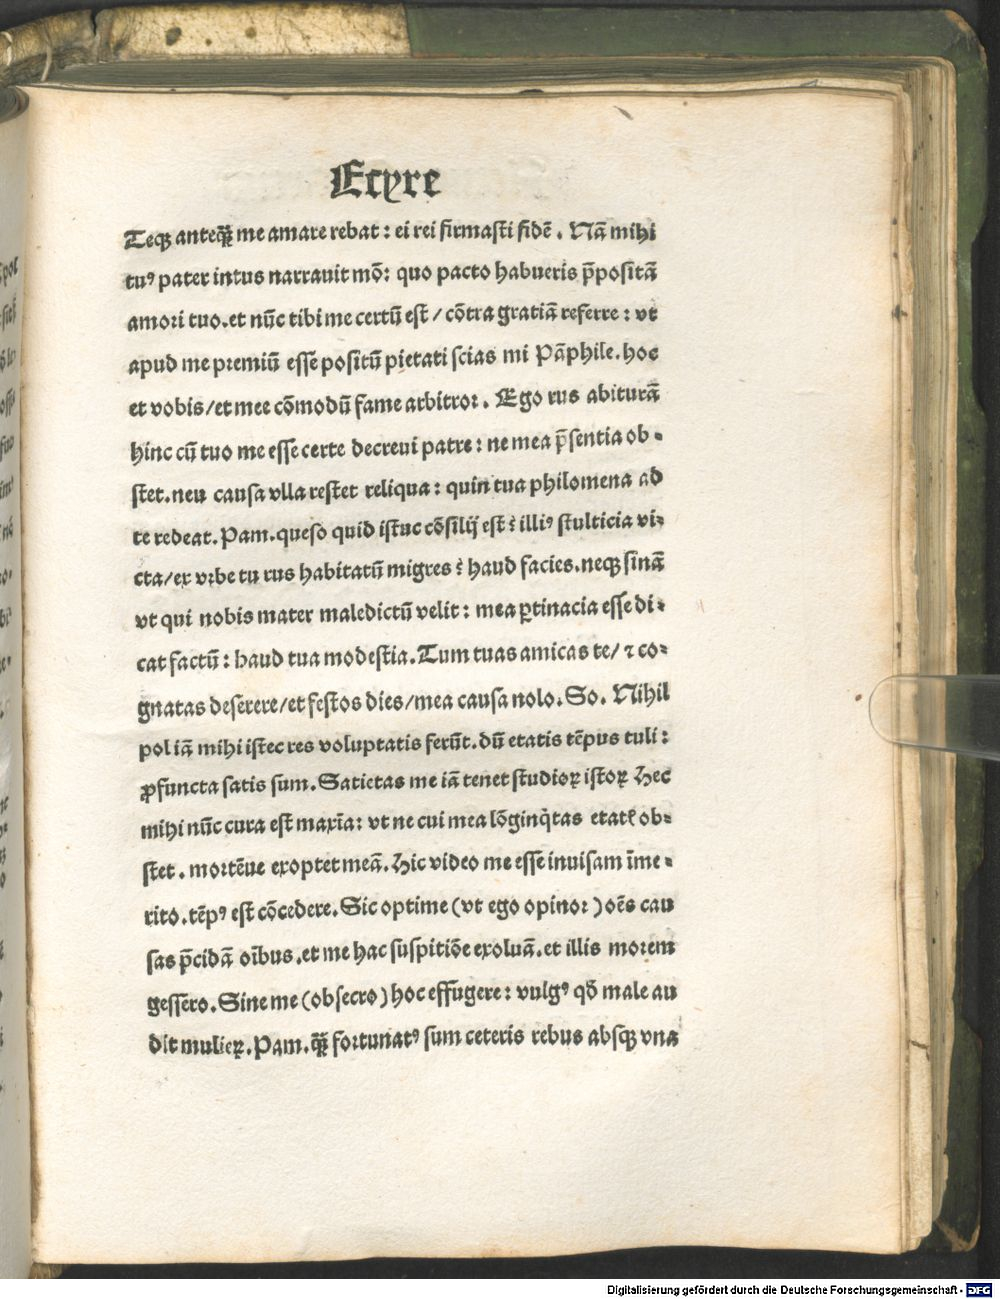 Ecyre
Teqꝫ anteqꝫ̄ me amare rebat : ei rei firmasti fidē . Nā mihi
tuꝰ pater intus narrauit mō: quo pacto habueris p̄positā
amori tuo.et nūc tibi me certū est / cōtra gratiā referre : vt
apud me premiū esse positū pietati scias mi Pāphile.hoc
et vobis/et mee cōmodū fame arbitror . Ego rus abiturā
hinc cū tuo me esse certe decreui patre : ne mea p̄sentia ob-
stet.neu causa vlla restet reliqua : quin tua philomena ad
te redeat.Pam.queso quid istuc cōsilij est? illiꝰ stulticia vi-
cta/ex vrbe tu rus habitatū migres? haud facies.neqꝫ sinā
vt qui nobis mater maledictū velit : mea ꝑtinacia esse di-
cat factū : haud tua modestia.Tum tuas amicas te/ ⁊ co-
gnatas deserere/et festos dies/mea causa nolo.So. Nihil
pol iā mihi istec res voluptatis ferūt.dū etatis tēpus tuli :
ꝓfuncta satis sum.Satietas me iā tenet studioꝝ istoꝝ Hec
mihi nūc cura est maxīa: vt ne cui mea lōginq̄tas etatꝭ ob-
stet . mortēue exoptet meā.Hic video me esse inuisam īme-
rito.tēpꝰ est cōcedere.Sic optime (vt ego opinor )oēs cau
sas p̄cidā oībus.et me hac suspitiōe exoluā.et illis morem
gessero.Sine me (obsecro)hoc effugere: vulgꝰ qđ male au
dit mulieꝝ.Pam.qꝫ̄ fortunatꝰ sum ceteris rebus absqꝫ vna
Digitalisierung gefördert durch die Deutsche Forschungsgemeinschaft - DFG